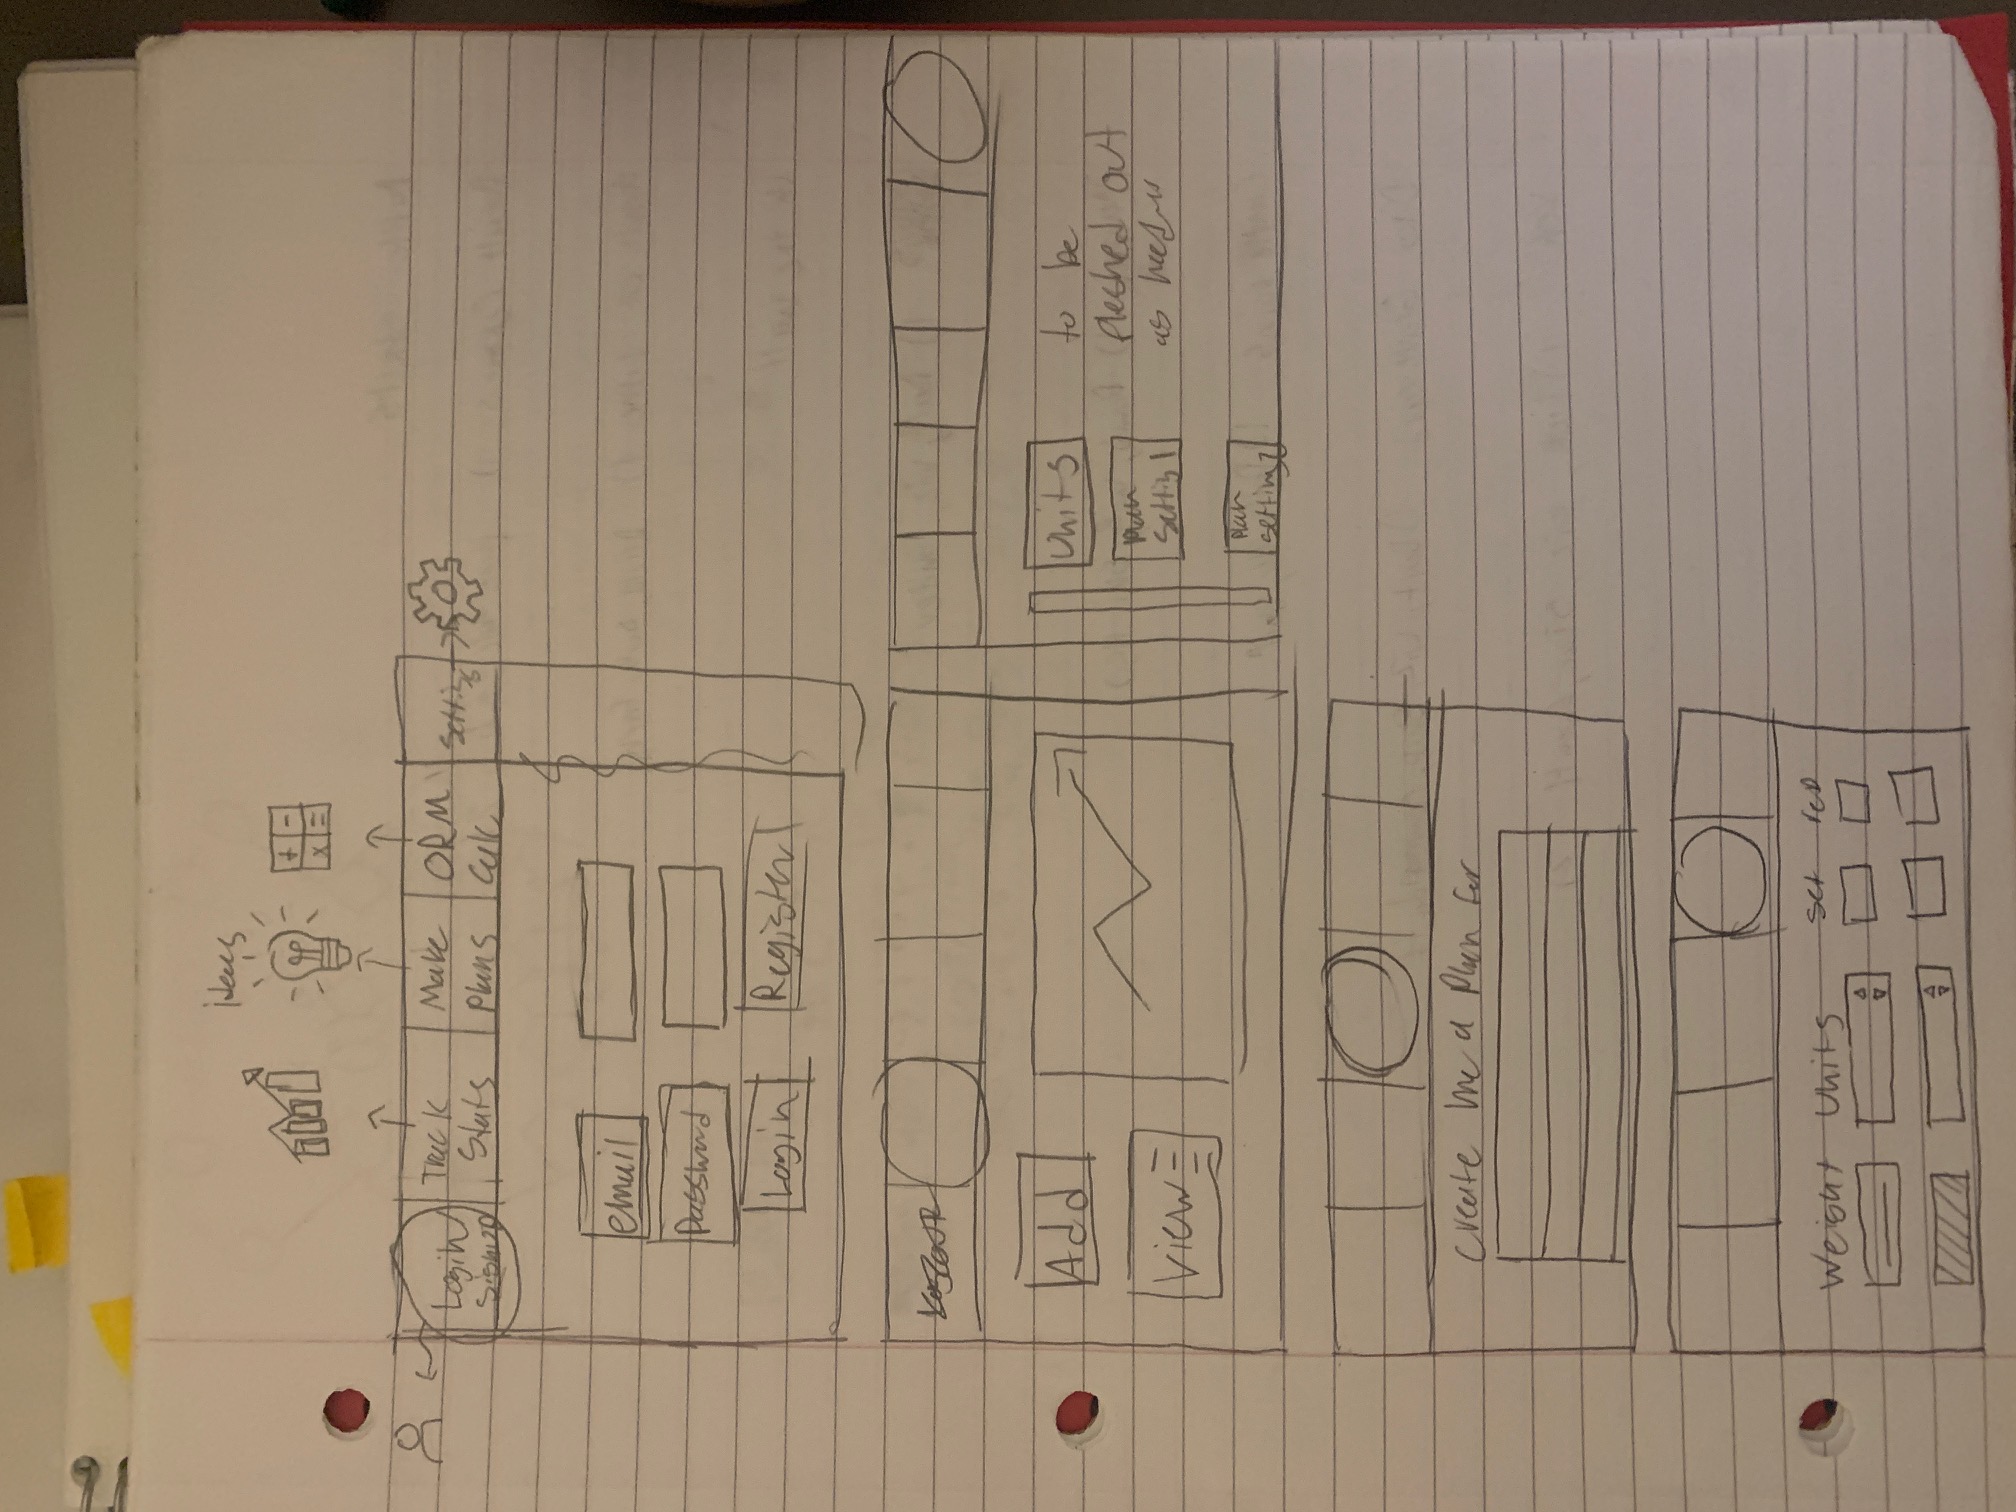 ideas
+ -
x =
Login/
Signup
Track
Stats
Make
Plans
ORM
Calc
Settings
email
Password
Login
Register
Add
View
Units
Plan
Setting 1
Plan
setting 2
to be
fleshed out
as needed
Create me a Plan for
Weight Units set rep